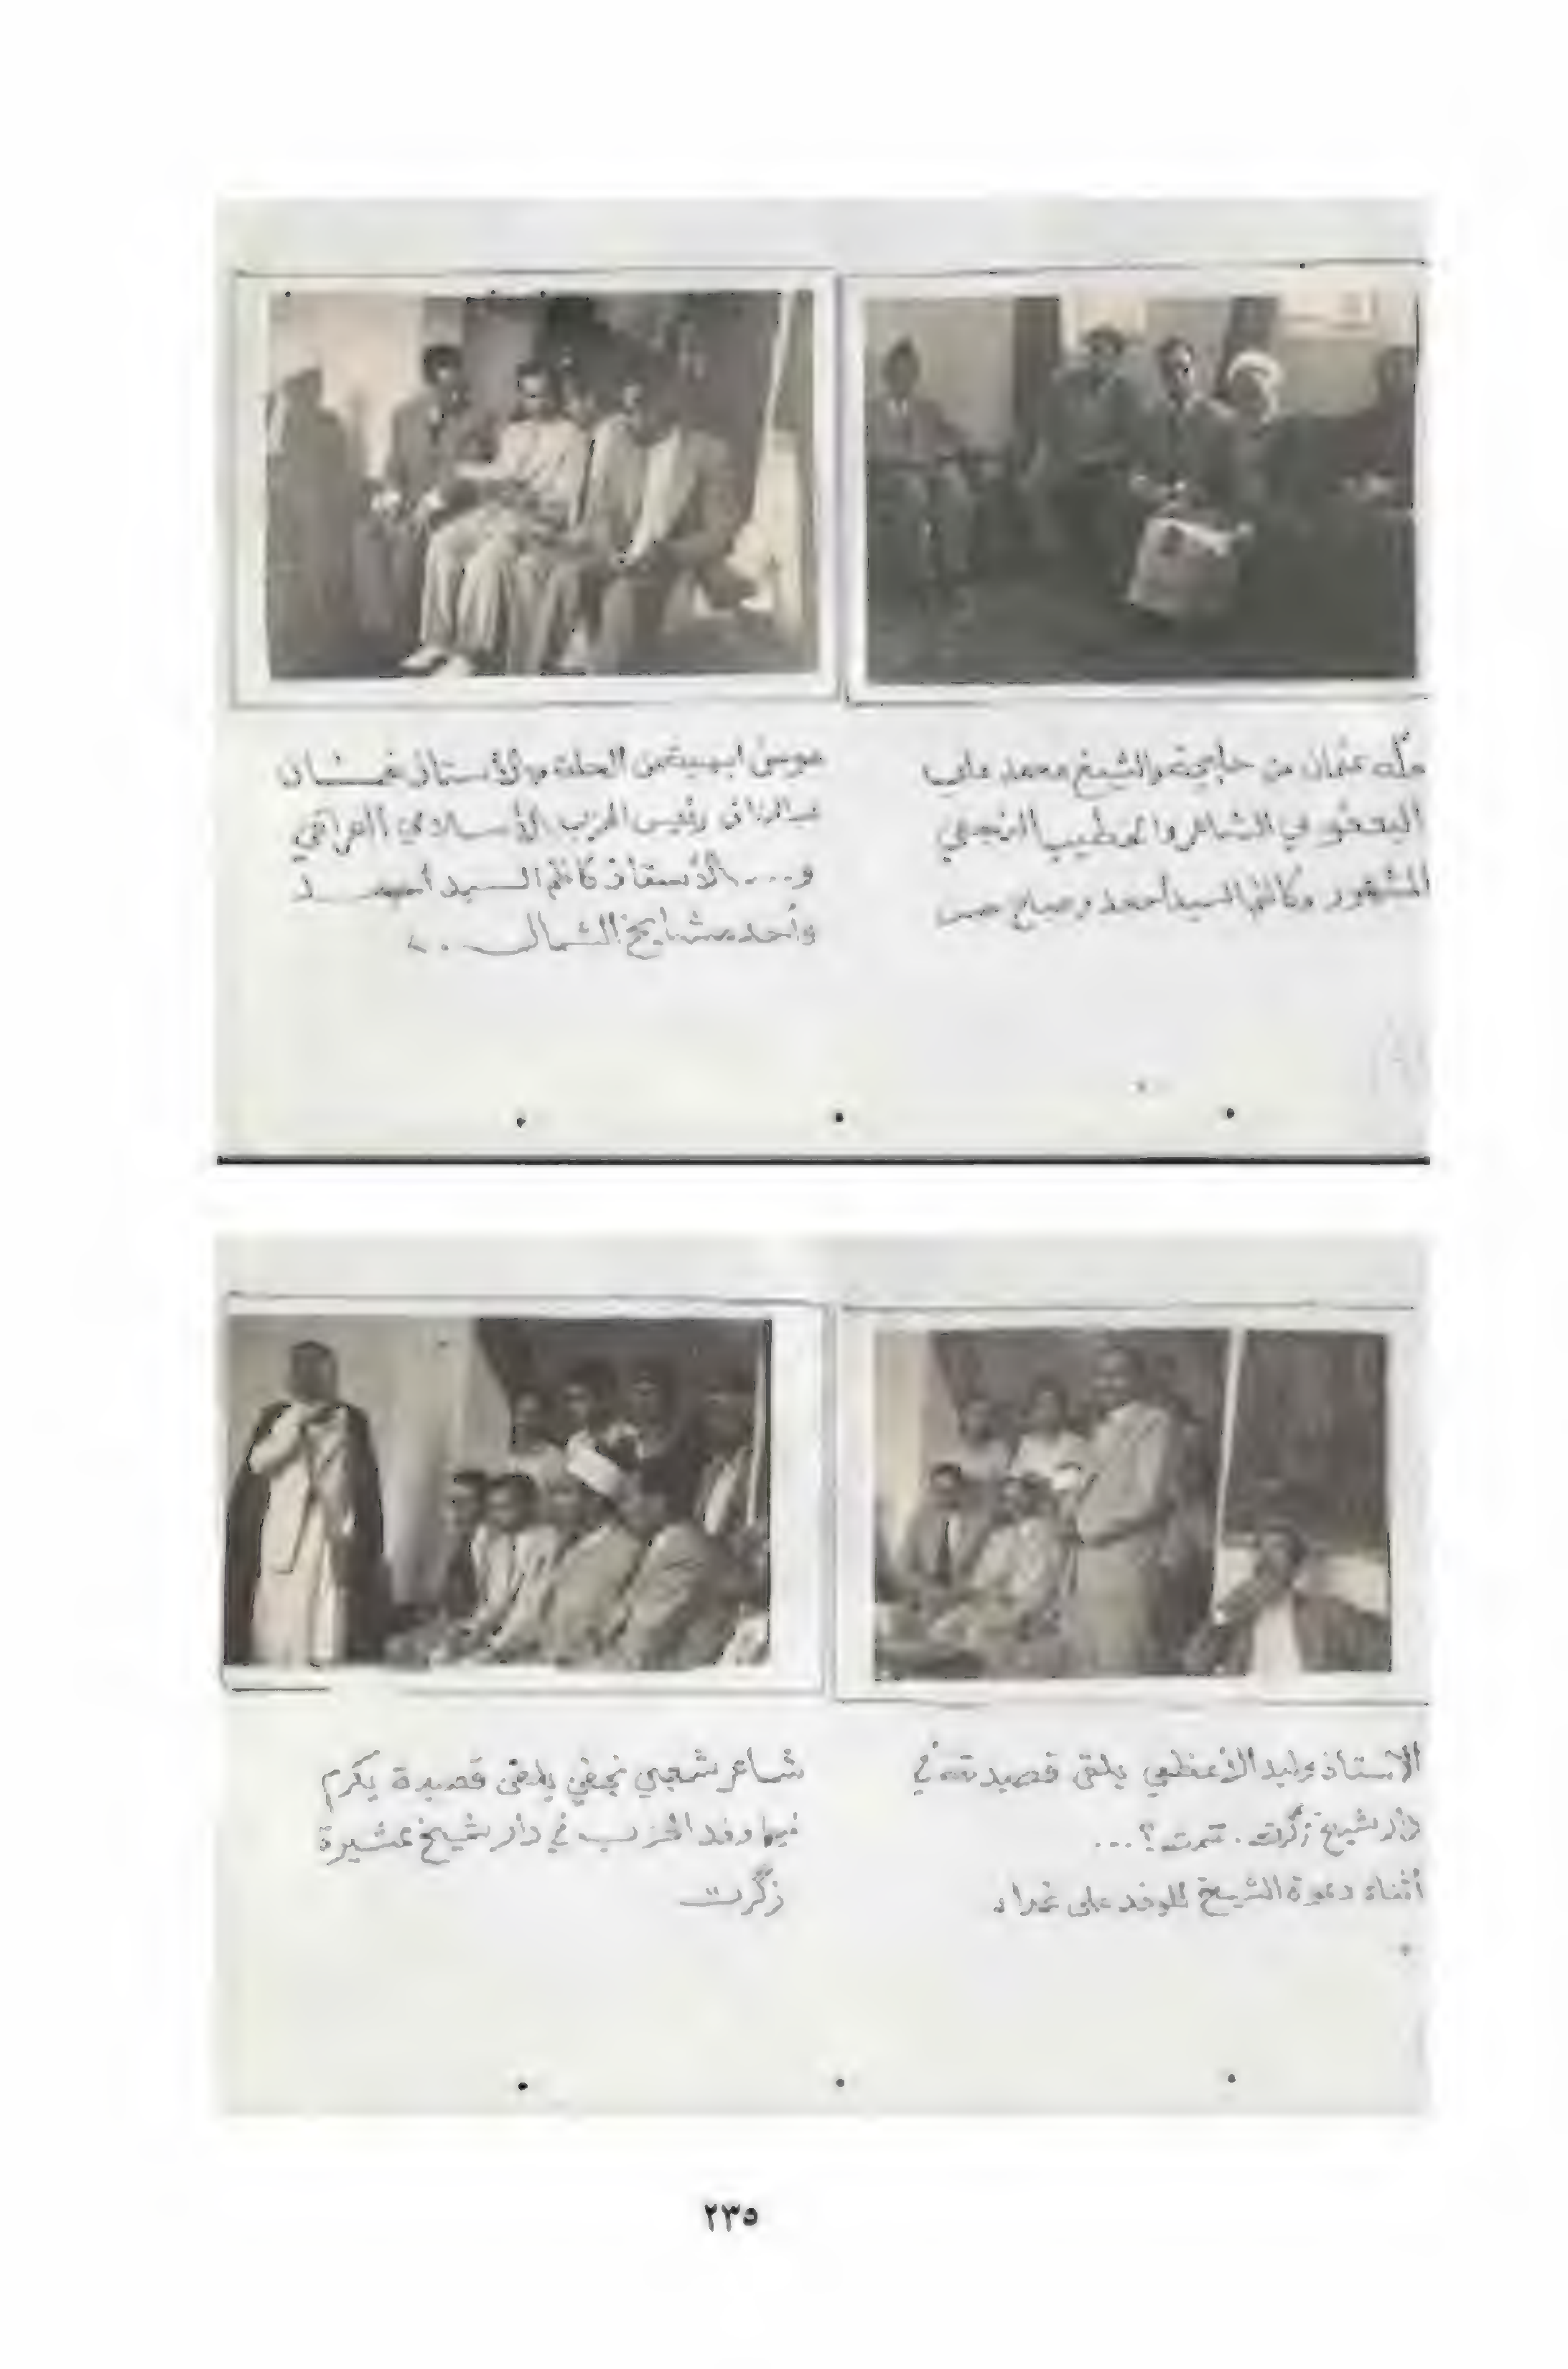 ملّه عثمان من حلبجة والشيخ محمد علي
اليعقوبي الشاعر والخطيب النجفي
المشهور وكاظم السيد أحمد وصبلح حسن
موسى من الحلة والأستاذ نعمـــان
عبدالرزاق رئيس الحزب الأسلامي العراقي
و... الأستاذ كاظم السيد أحمـــد
وأحد مشايخ الشمال ..
الاستاذ وليد الأعظمي يلقي قصيدته في
دار شيخ زگرت . ؟ ...
أثناء دعوة الشيخ للوفد على غداء
شاعر شعبي نجفي يلقي قصيدة يكرم
فيها وفد الحزب في دار شيخ عشيرة
زگرت
٢٣٥